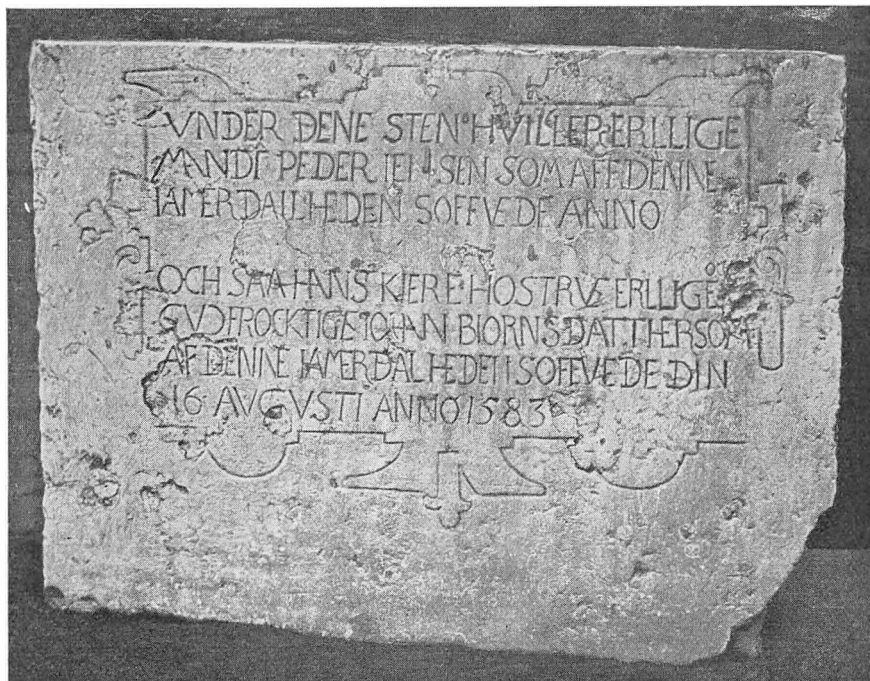 VNDER DENE STEN HVILLER ERLLIGE
MANDT PEDER IENSEN SOM AFF DENNE
IAMERDAIL HEDEN SOFFVEDE ANNO
OCH SAA HANS KIERE HOSTRVE ERLLIGE
GVDFROCKTIGE IOHAN BIORNS DATTHER SOM
AF DENNE IAMERDAL HEDEN SOFFVEDE DIN
16 AVGVSTI ANNO 1583